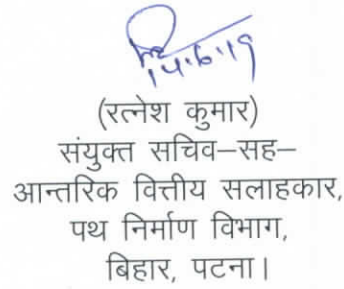 14.6.19
(रत्नेश कुमार)
संयुक्त सचिव–सह–
आन्तरिक वित्तीय सलाहकार,
पथ निर्माण विभाग,
बिहार, पटना।